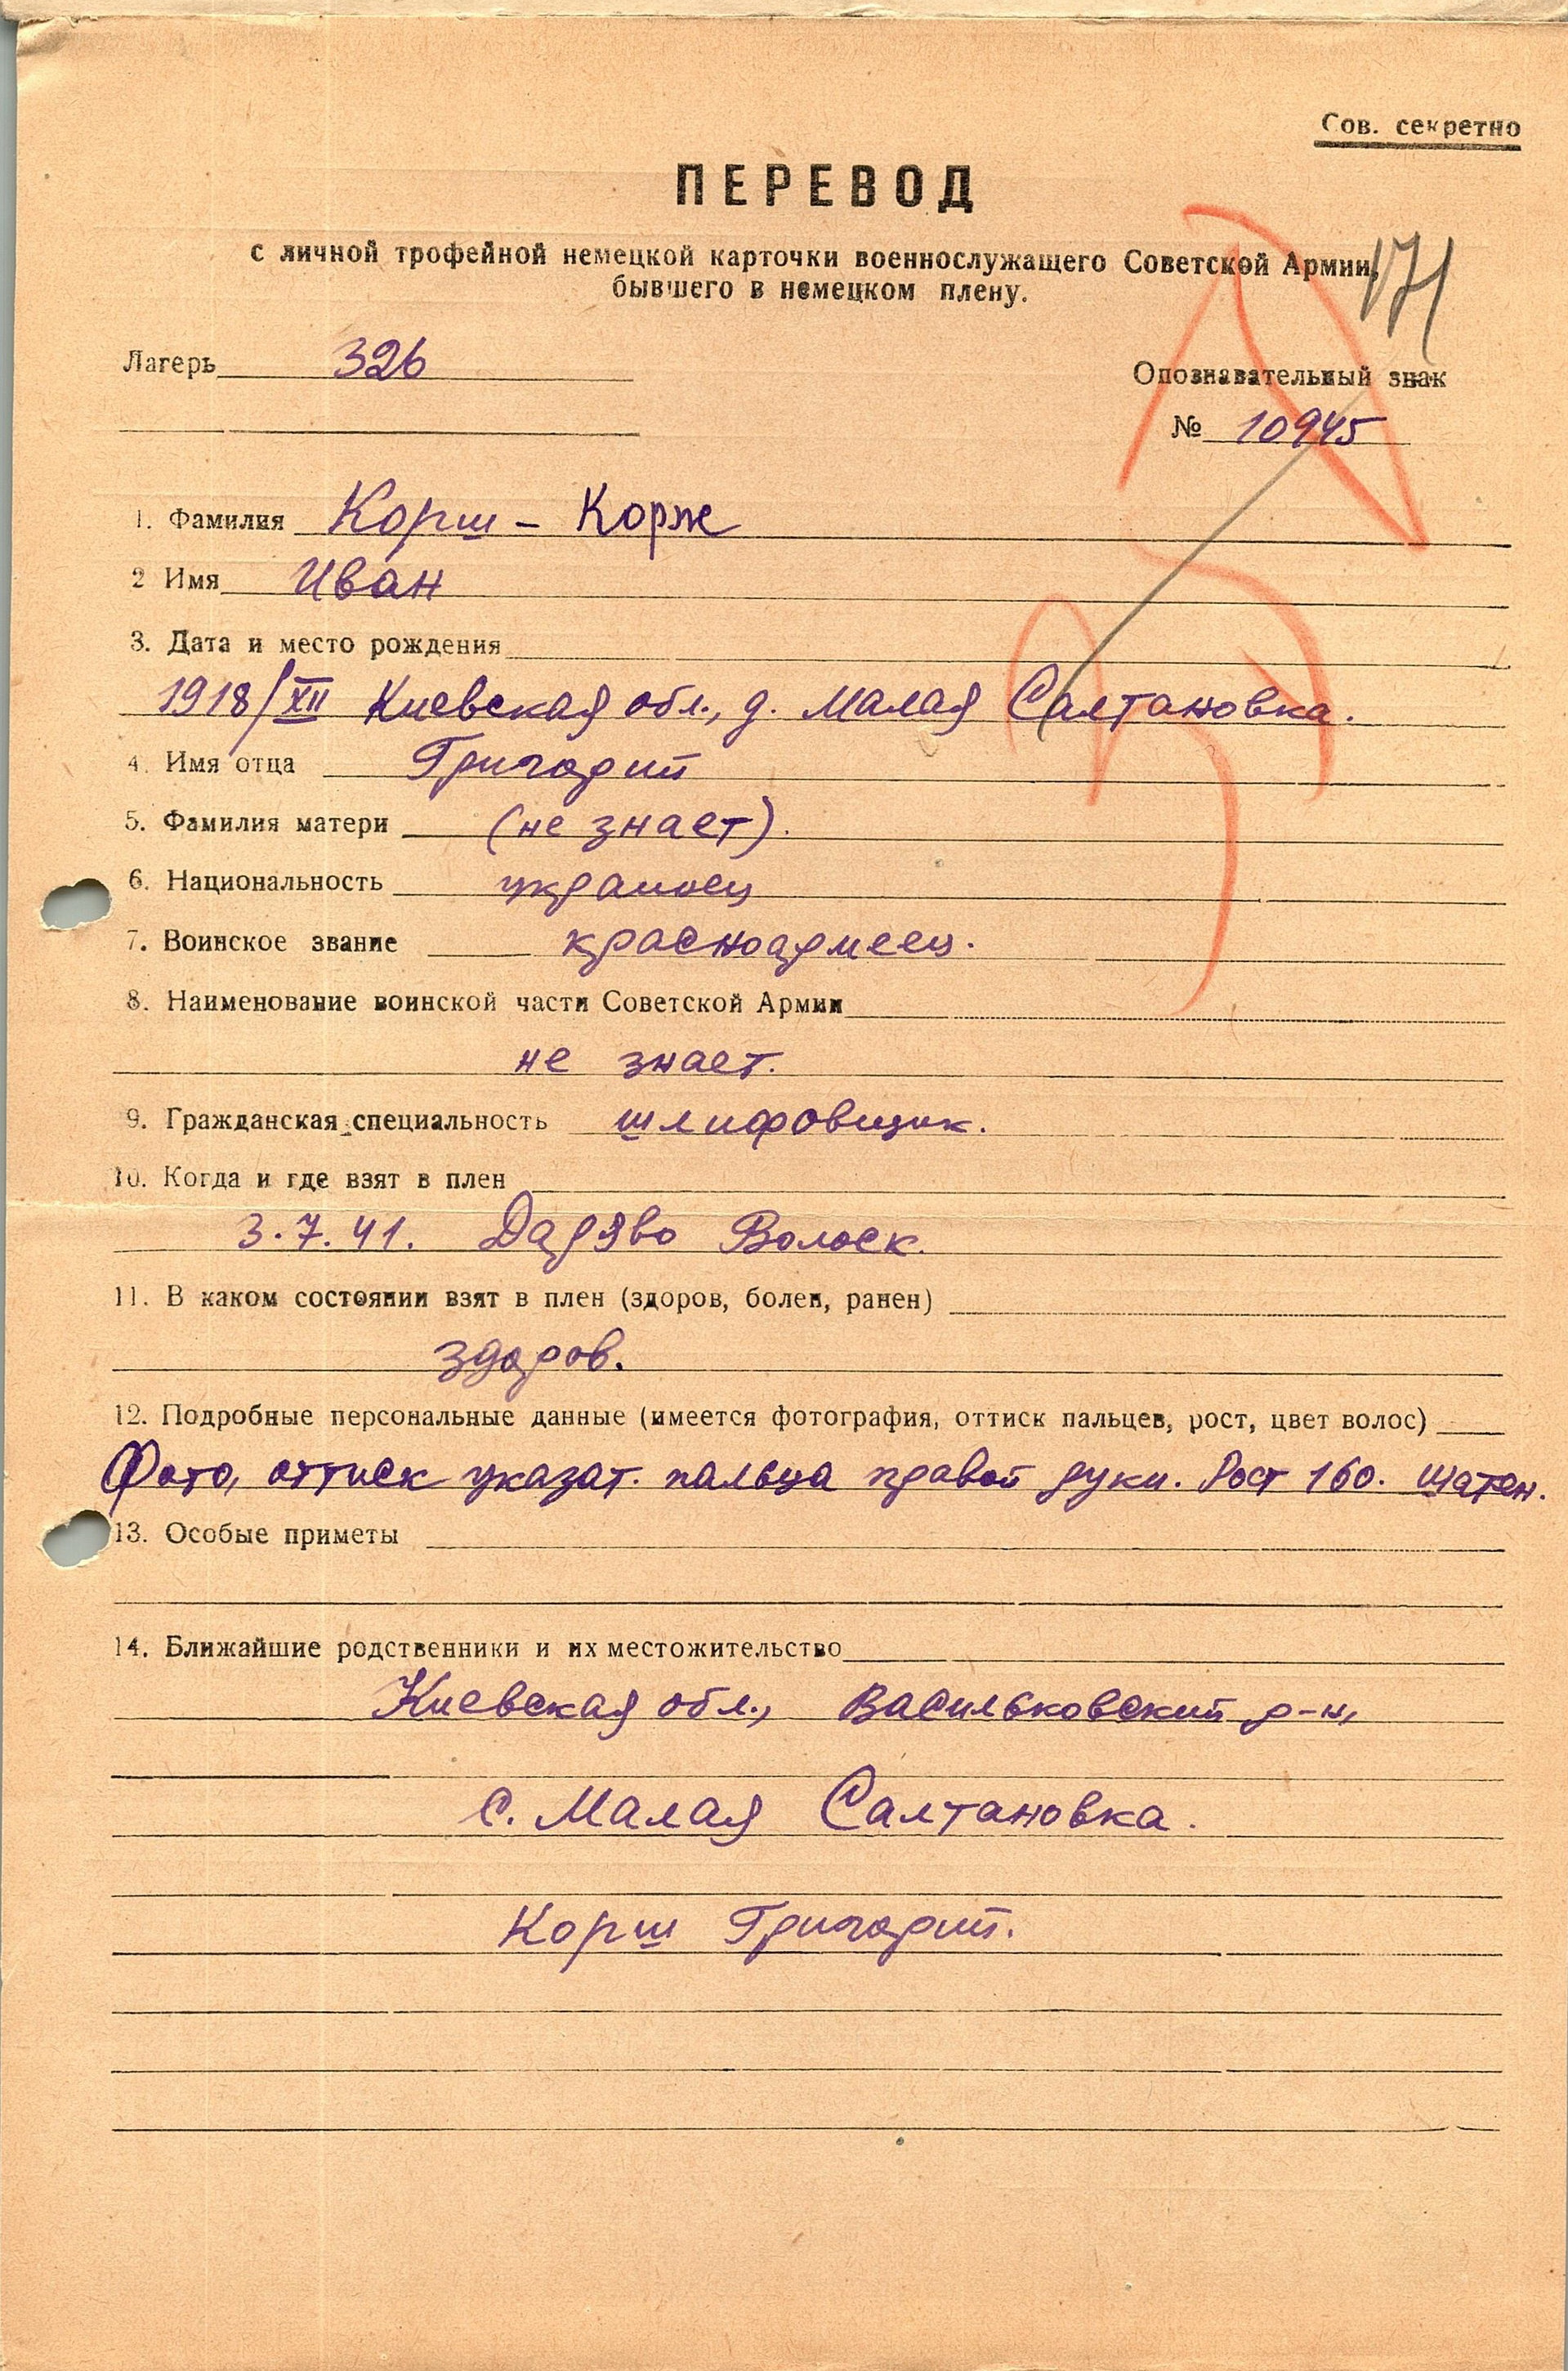 Сов. секретно
ПЕРЕВОД
с личной трофейной немецкой карточки военнослужащего Советской Армии,
бывшего в немецком плену.
171
Лагерь 326
Опознавательный знак
№ 10945
1. Фамилия Корш - Корж
2 Имя Иван
3. Дата и место рождения
1918/XII Киевская обл., д. Малая Салтановка.
4. Имя отца Григорий
5. Фамилия матери (не знает).
6. Национальность украинец
7. Воинское звание красноармеец.
8. Наименование воинской части Советской Армии
не знает.
9. Гражданская специальность шлифовщик.
10. Когда и где взят в плен
3.7.41. Волоск.
11. В каком состоянии взят в плен (здоров, болен, ранен)
здоров.
12. Подробные персональные данные (имеется фотография, оттиск пальцев, рост, цвет волос)
Фото, оттиск указат. пальца правой руки. Рост 160. Шатен.
13. Особые приметы
14. Ближайшие родственники и их местожительство
Киевская обл., Васильковский р-н,
с. Малая Салтановка.
Корш Григорий.